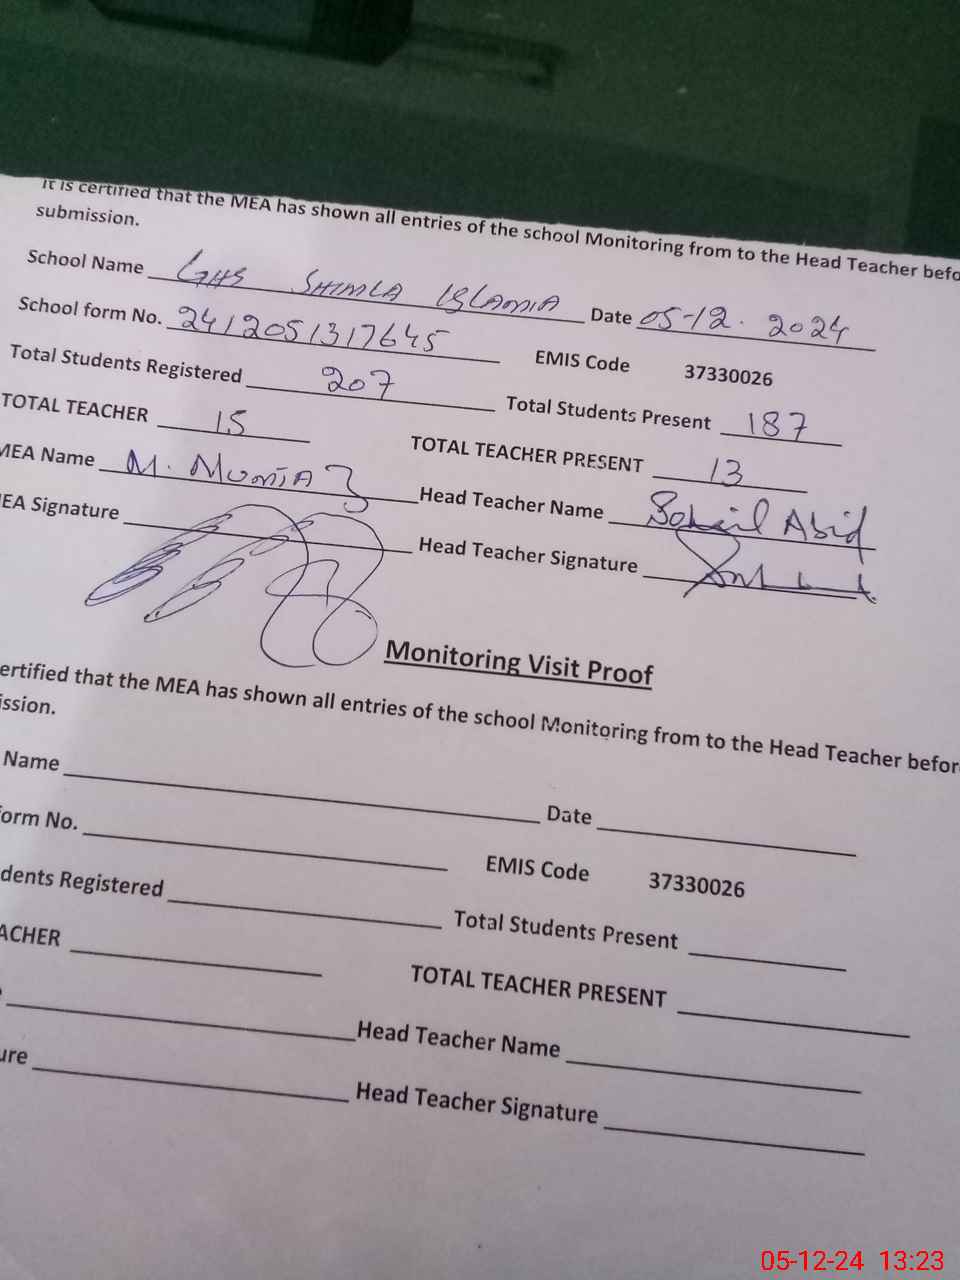 It is certified that the MEA has shown all entries of the school Monitoring from to the Head Teacher befo
submission.
School Name GHS SHIMLA ISLAMIA Date 05-12-2024
School form No. 2412051317645 EMIS Code 37330026
Total Students Registered 207 Total Students Present 187
TOTAL TEACHER 15 TOTAL TEACHER PRESENT 13
MEA Name M. Head Teacher Name Sohail Abid
EA Signature Head Teacher Signature
Monitoring Visit Proof
ertified that the MEA has shown all entries of the school Monitoring from to the Head Teacher befor
ission.
Name Date
orm No. EMIS Code 37330026
dents Registered Total Students Present
ACHER TOTAL TEACHER PRESENT
Head Teacher Name
ure Head Teacher Signature
05-12-24 13:23